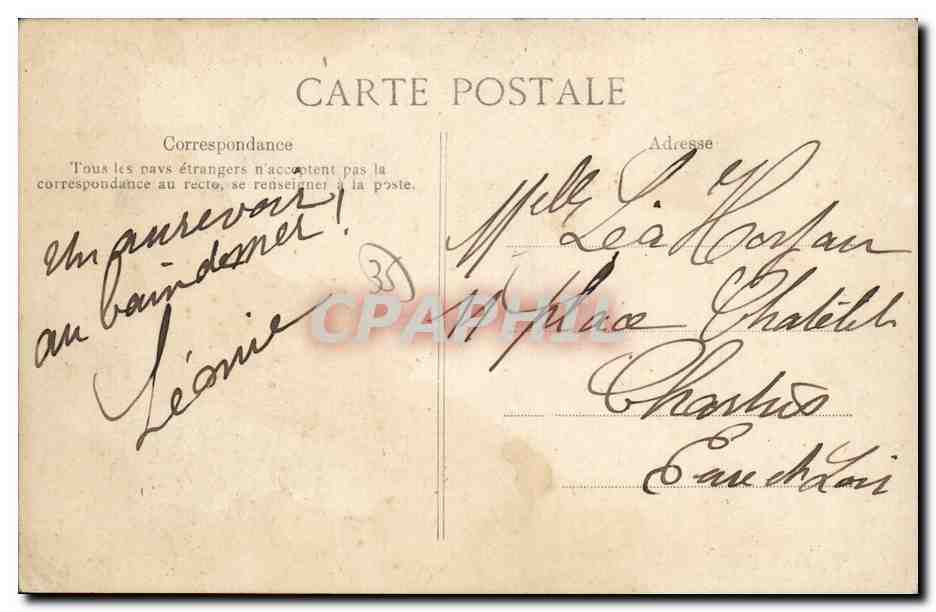 CARTE POSTALE
Correspondance
Tous les pays étrangers n'acceptent pas la
correspondance au recto, se renseigner à la poste.
un aurevoir
au bain de mer!
Léonie
35
Adresse
Melle Léa
11 place Châtelet
Chartres
Eure et Loir
CPAPHIL